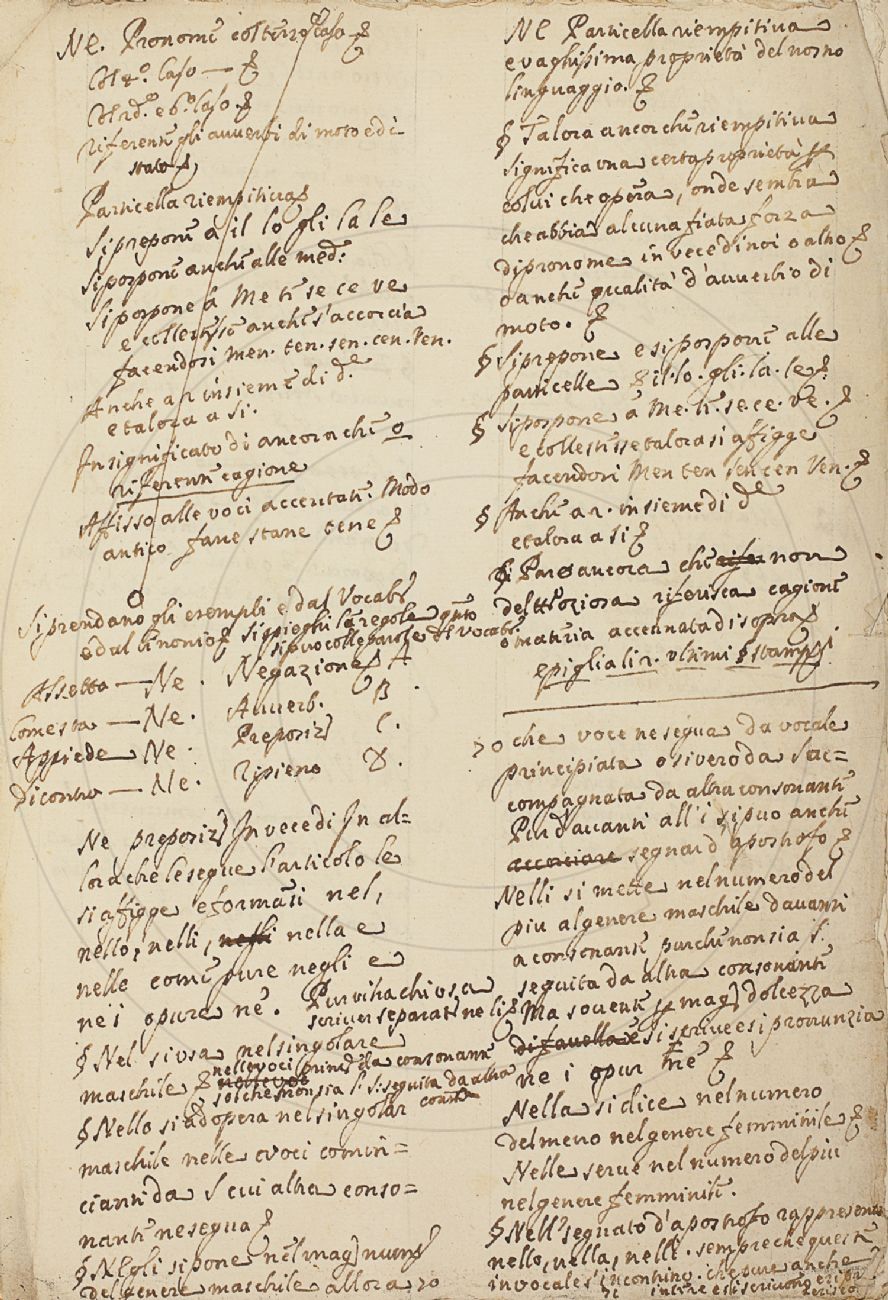 Ne. Pronome col terzo caso
Col 4.º caso —
Col 2.º e 6.º caso
riferente gli avverbi di moto e di
stato
Particella riempitiva
Si prepone à il lo gli la le
Si pospone anche alle med:
Si pospone à Me ti se ce ve
e coll' anche s'accorcia
facendosi men. ten. sen. cen. ven.
Anche a 2 insieme di d.e
e talora a si.
In significato di ancora che o
riferente cagione
Affisso alle voci accentate. Modo
antico fane stane tene
Si prendano gli esempli e dal Vocab.
e dal Cinonio Si pieghi le regole
si può colle parole del Vocab.
Assetto — Ne. Negazione A
Comesta — Ne. Avverb. B.
Appiede — Ne. Preposiz C.
Dicontro — Ne. Ripieno D.
Ne preposiz In vece di In al=
lora che le segue l'articolo le
si affigge e formasi nel,
nello, nelli, negli nella e
nelle come pure negli e
ne i opure ne'. Pur vi ha chi usa
scriver separat. ne li
§ Nel si usa nel singolare
maschile nelle voci princ. da consonante
sol che non sia S. seguita da altra
conso.
§ Nello si adopera nel singolar
maschile nelle voci comin=
cianti da S cui altra conso=
nante ne segua
§ Negli si pone nel mag. num.
del genere maschile allora 20
Ne Particella riempitiva
e vaghissima proprietà del nostro
linguaggio.
§ Talora ancorche riempitiva
significa una certa proprietà
colui che opera, onde sembra
che abbia alcuna fiata forza
di pronome in vece di noi o altro
d'anche qualità d'avverbio di
moto.
§ Si prepone e si pospone alle
particelle il. lo. gli. la. le
§ Si pospone à Me. ti. se. ce. ve.
e talora si affigge
facendosi Men ten sen cen Ven.
§ Anche a 2. insieme di d.e
e talora a si
§ Pare ancora che non
del tt.º oziosa riferisca cagione
o materia accennata di sopra
e piglia li 2. ultimi § stampi.
20 che voce ne segua da vocale
principiata o si vero da S ac=
compagnata da altra consonante
Pur d'avanti all' i si può anche
accorciare segnar d'apostrofo
Nelli si mette nel numero del
più al genere maschile davanti
a consonante purche non sia S.
seguita da altra consonante
Ma sovente p mag. dolcezza
di favella e si scrive e si pronunzia
ne i opur ne
Nella si dice nel numero
del meno nel genere femminile
Nelle serve nel numero del più
nel genere femminile.
§ Nell' segnato d'apostrofo rappresenta
nello, nella, nelli. sempre che queste
in vocale s'incontrino. che pure anche